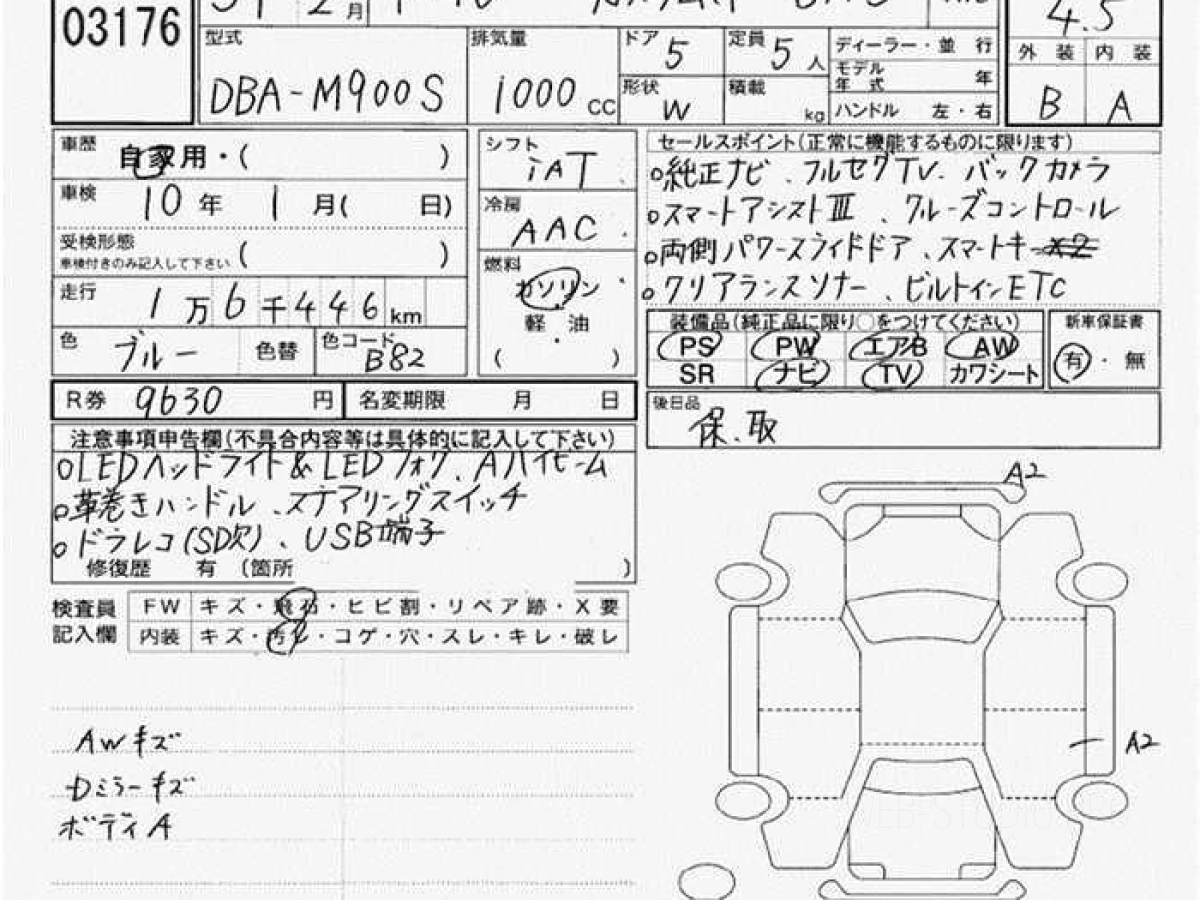 03176
2月
4.5
型式 DBA-M900S
排気量 1000 CC
ドア 5
定員 5人
形状 W
積載 kg
ディーラー・並 行
モデル年式 年
ハンドル 左・右
外 装 内 装
B A
車歴 自家用・( )
車検 10年 1月( 日)
受検形態 ( )
車検付きのみ記入して下さい
走行 1万6千446km
色 ブルー 色替
色コード B82
シフト iAT
冷房 AAC
燃料 ガソリン
軽・油
( )
セールスポイント(正常に機能するものに限ります)
○純正ナビ、フルセグTV、バックカメラ
○スマートアシストⅢ、クルーズコントロール
○両側パワースライドドア、スマートキー×2
○クリアランスソナー、ビルトインETC
装備品(純正品に限り○をつけてください)
PS PW エアB AW
SR ナビ TV カワシート
新車保証書
有・無
R券 9630 円
名変期限 月 日
後日品
保、取
注意事項申告欄(不具合内容等は具体的に記入して下さい)
○LEDヘッドライト&LEDフォグ、Aハイビーム
○革巻きハンドル、ステアリングスイッチ
○ドラレコ(SD欠)、USB端子
修復歴 有 〔箇所 〕
検査員記入欄
FW キズ・飛石・ヒビ割・リペア跡・X要
内装 キズ・汚レ・コゲ・穴・スレ・キレ・破レ
A2
A2
AWキズ
Dミラーキズ
ボディA